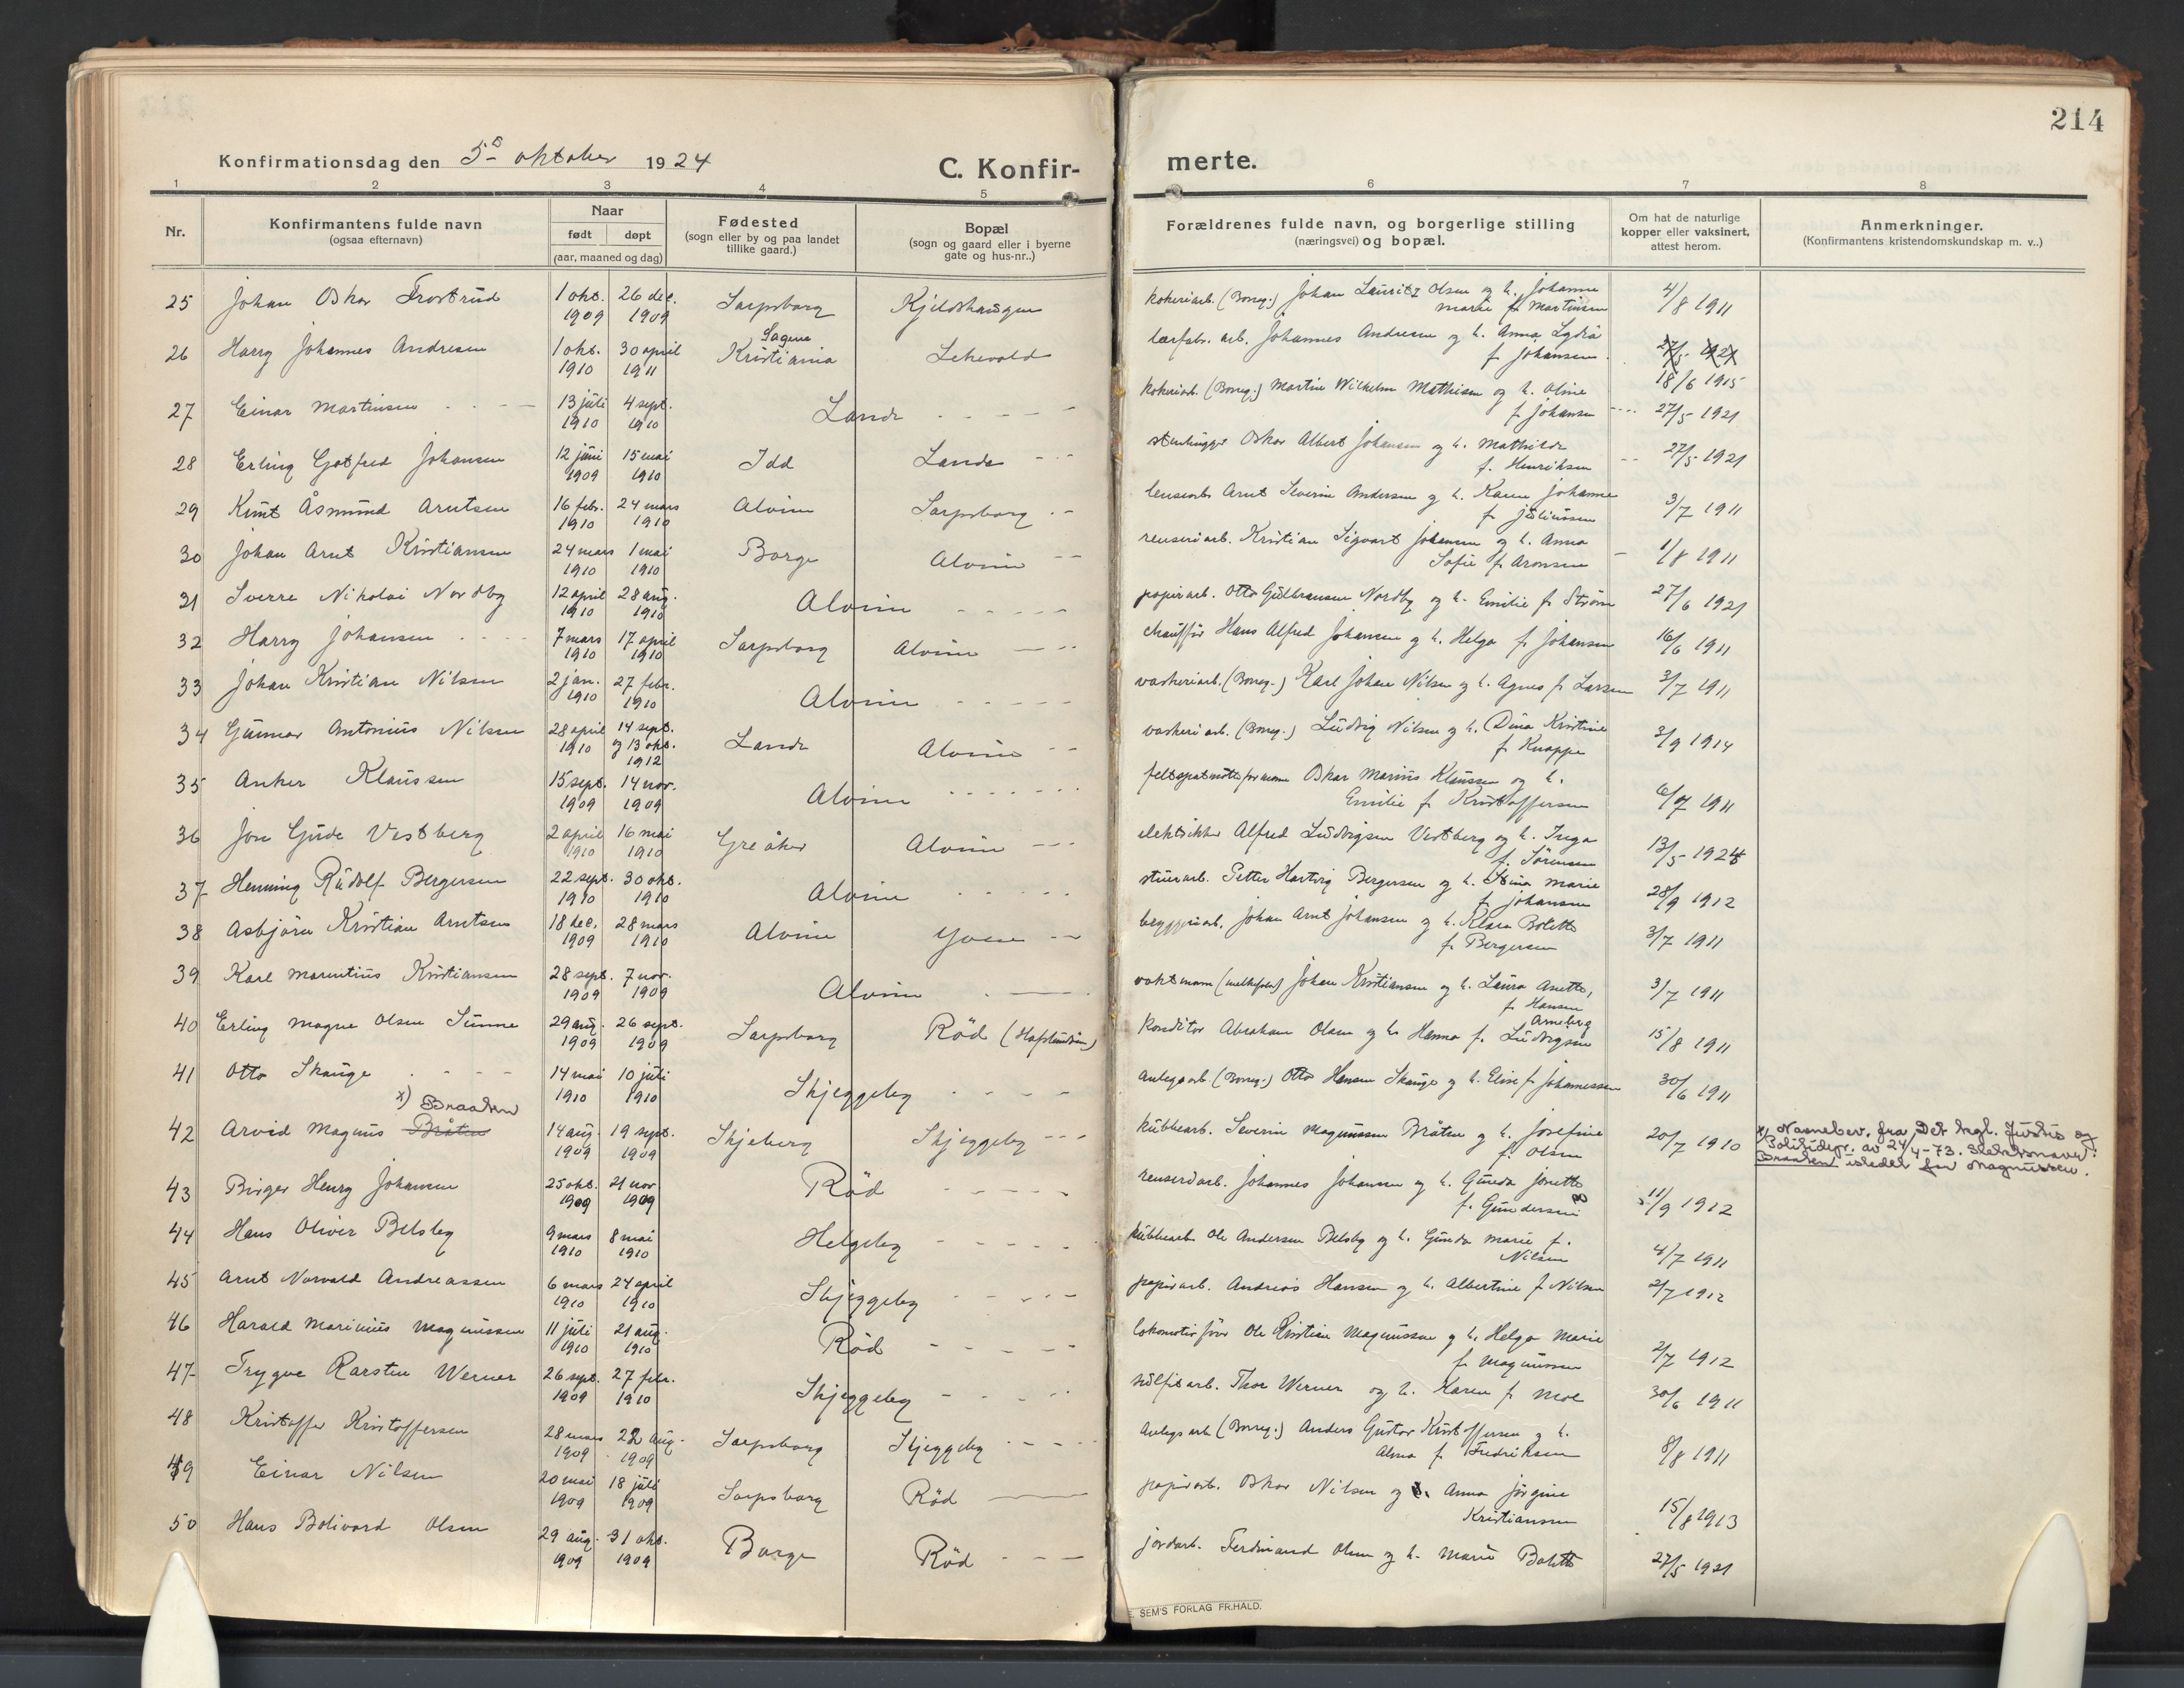 214
Konfirmationsdag den 5te oktober 1924
C. Konfir-
merte.
1 2 3 4 5 6 7 8
Nr.
Konfirmantens fulde navn
(ogsaa efternavn)
Naar
født døpt
(aar, maaned og dag)
Fødested
(sogn eller by og paa landet
tillike gaard.)
Bopæl
(sogn og gaard eller i byerne
gate og hus-nr..)
Forældrenes fulde navn, og borgerlige stilling
(næringsvei) og bopæl.
Om hat de naturlige
kopper eller vaksinert,
attest herom.
Anmerkninger.
(Konfirmantens kristendomskundskap m. v..)
25 Johan Oskar Frostrud 1 okt. 26 dec. Sarpsborg Kjeldshaugen kokeriarb. (Borreg.) Johan Lauritz Olsen og h. Johanne 4/8 1911
1909 1909 Marie f. Martinsen
Sagene
26 Harry Johannes Andresen 1 okt. 30 april Kristiania Lekevold lærfabr. arb. Johannes Andresen og h. Anna Lydia 27/5 1921
1910 1911 f. Johansen 18/6 1915
27 Einar Martinsen 13 juli 4 sept. Lande kokeriarb. (Borreg.) Martin Wilhelm Mathisen og h. Oline
1910 1910 f. Johansen 27/5 1921
28 Erling Gotfred Johansen 12 juni 15 mai Idd Lande stenhugger Oskar Albert Johansen og h. Mathilde
1909 1910 f. Henriksen 27/5 1921
29 Knut Åsmund Arntsen 16 febr. 24 mars Alvim Sarpsborg lensearb. Arnt Severin Andersen og h. Karen Johanne
1910 1910 f. Juliussen 3/7 1911
30 Johan Arnt Kristiansen 24 mars 1 mai Borge Alvim renseriarb. Kristian Sigvart Johansen og h. Anna
1910 1910 Sofie f. Aronsen 1/8 1911
31 Sverre Nikolai Nordby 12 april 28 aug. Alvim papirarb. Otto Gulbransen Nordby og h. Emilie f. Strøm 27/6 1921
1910 1910
32 Harry Johansen 7 mars 17 april Sarpsborg Alvim chauffør Hans Alfred Johansen og h. Helga f. Johansen 16/6 1911
1910 1910
33 Johan Kristian Nilsen 2 jan. 27 febr. Alvim vaskeriarb. (Borreg.) Karl Johan Nilsen og h. Agnes f. Larsen 3/7 1911
1910 1910
34 Gunnar Antonius Nilsen 28 april 14 sept. Lande Alvim vaskeriarb. (Borreg.) Ludvig Nilsen og h. Dina Kristine
1910 og 13 okt. f. Knappe 3/9 1914
1912
35 Anker Klaussen 15 sept. 14 nov. Alvim feltspatmølleformann Oskar Marius Klaussen og h.
1909 1909 Emilie f. Kristoffersen 6/7 1911
36 Jon Gude Vestberg 2 april 16 mai Greåker Alvim elektriker Alfred Ludvigsen Vestberg og h. Inga
1910 1910 f. Sørensen 13/5 1924
37 Henning Rudolf Bergersen 22 sept. 30 okt. Alvim stuerarb. Petter Hartvig Bergersen og h. Stina Marie
1910 1910 f. Johansen 28/9 1912
38 Asbjørn Kristian Arntsen 18 dec. 28 mars Alvim Yven byggeriarb. Johan Arnt Johansen og h. Klara Bolette
1909 1910 f. Bergersen 3/7 1911
39 Karl Marentius Kristiansen 28 sept. 7 nov. Alvim vaktmann Johan Kristiansen og h. Laura Anette,
1909 1909 f. Hansen 3/7 1911
Arneberg
40 Erling Magne Olsen Sunne 29 aug. 26 sept. Sarpsborg Rød (Hafslundsøen) Konditor Abraham Olsen og h. Hanna f. Ludvigsen 15/8 1911
1909 1909
41 Otto Skauge 14 mai 10 juli Skjeggeby anlegsarb. (Borreg.) Otto Hansen Skauge og h. Elise f. Johannessen 30/6 1911
1910 1910
x) Braaten
42 Arvid Magnus Bråten 14 aug. 19 sept. Skjeberg Skjeggeby kubbearb. Severin Magnussen Bråten og h. Josefine 20/7 1910
1909 1909 f. Olsen
x) Navnebev. fra Det kgl. Justis og
Politidepr. av 24/4-73. Slektsnavn:
Braaten istedet for Magnussen.
43 Birger Henry Johansen 25 okt. 21 nov. Rød renseriarb. Johannes Johansen og h. Gunda Jonette
1909 1909 f. Gundersen 11/9 1912
44 Hans Oliver Belsby 9 mars 8 mai Helgeby kubbearb. Ole Andersen Belsby og h. Gunda Marie f.
1910 1910 Nilsen 4/7 1911
45 Arnt Norvald Andreassen 6 mars 24 april Skjeggeby papirarb. Andreas Hansen og h. Albertine f. Nilsen 2/7 1912
1910 1910
46 Harald Marinius Magnussen 11 juli 21 aug. Rød lokomotivfører Ole Kristian Magnussen og h. Helga Marie
1910 1910 f. Magnussen 2/7 1912
47 Trygve Karsten Werner 26 sept. 27 febr. Skjeggeby sulfitarb. Thor Werner og h. Karen f. Moe 30/6 1911
1909 1910
48 Kristoffer Kristoffersen 28 mars 22 aug. Sarpsborg Skjeggeby anlegsarb. (Borreg.) Anders Gustav Kristoffersen og h.
1909 1909 Alma f. Fredriksen 8/8 1911
49 Einar Nilsen 20 mai 18 juli Sarpsborg Rød papirarb. Oskar Nilsen og h. Anna Jørgine
1909 1909 Kristiansen 15/8 1913
50 Hans Bolivard Olsen 29 aug. 31 okt. Borge Rød jordarb. Ferdinand Olsen og h. Marie Bolette
1909 1909 27/5 1921
E. SEM'S FORLAG FR.HALD.